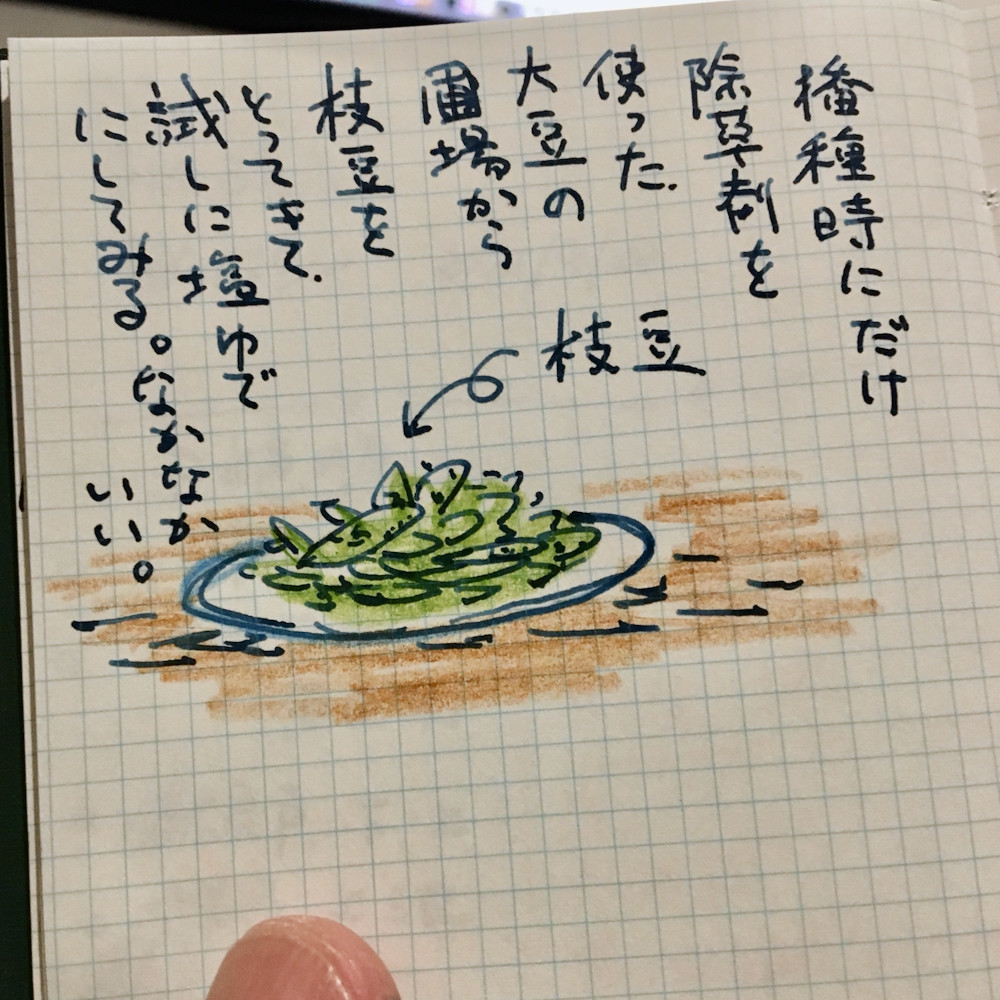 播種時にだけ
除草剤を
使った.
大豆の
圃場から
枝豆を
とってきて.
試しに塩ゆで
にしてみる。なかなか
いい。
枝豆